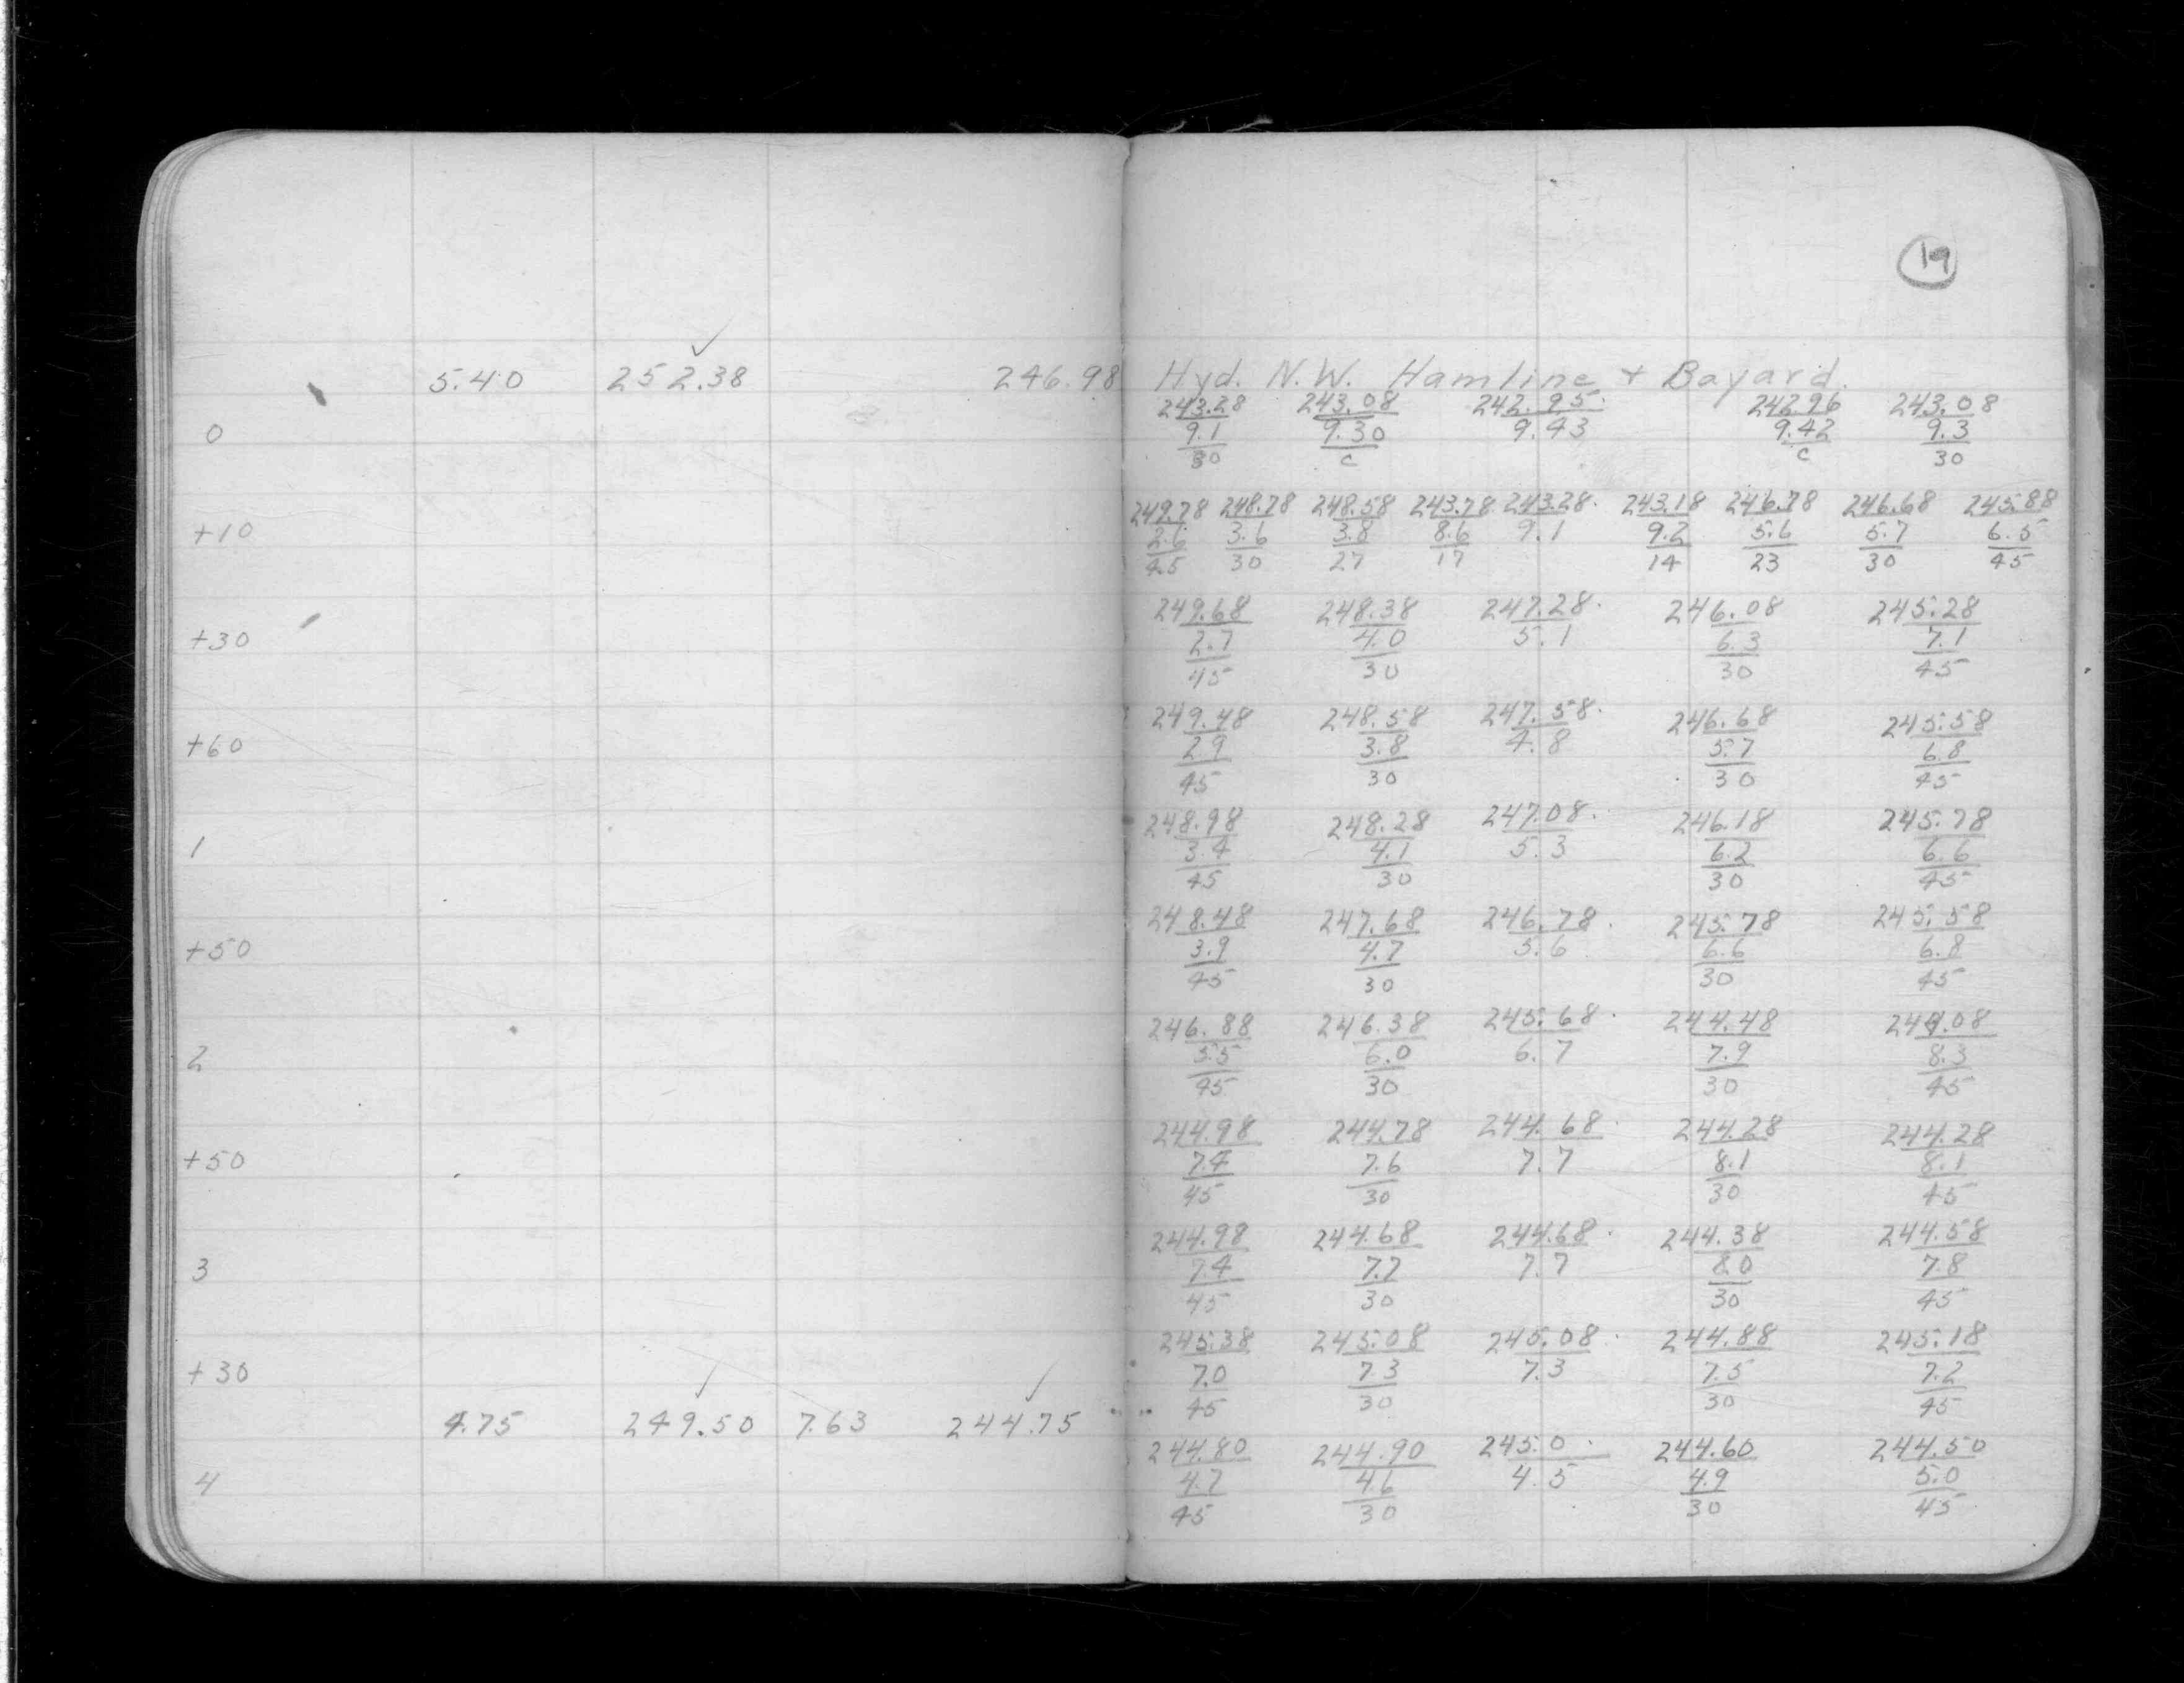 19
5.40 252.38 246.98 Hyd. N.W. Hamline + Bayard.
243.28 243.08 242.95 242.96 243.08
0 9.1 9.30 9.43 9.42 9.3
30 C C 30
249.78 248.78 248.58 243.78 243.28 243.18 246.78 246.68 245.88
+10 2.6 3.6 3.8 8.6 9.1 9.2 5.6 5.7 6.5
45 30 27 17 14 23 30 45
249.68 248.38 247.28 246.08 245.28
+30 2.7 4.0 5.1 6.3 7.1
45 30 30 45
249.48 248.58 247.58 246.68 245.58
+60 2.9 3.8 4.8 5.7 6.8
45 30 30 45
248.98 248.28 247.08 246.18 245.78
1 3.4 4.1 5.3 6.2 6.6
45 30 30 45
248.48 247.68 246.78 245.78 245.58
+50 3.9 4.7 5.6 6.6 6.8
45 30 30 45
246.88 246.38 245.68 244.48 244.08
2 5.5 6.0 6.7 7.9 8.3
45 30 30 45
244.98 244.78 244.68 244.28 244.28
+50 7.4 7.6 7.7 8.1 8.1
45 30 30 45
244.98 244.68 244.68 244.38 244.58
3 7.4 7.7 7.7 8.0 7.8
45 30 30 45
245.38 245.08 245.08 244.88 245.18
+30 7.0 7.3 7.3 7.5 7.2
45 30 30 45
4.75 249.50 7.63 244.75
244.80 244.90 245.0 244.60 244.50
4 4.7 4.6 4.5 4.9 5.0
45 30 30 45